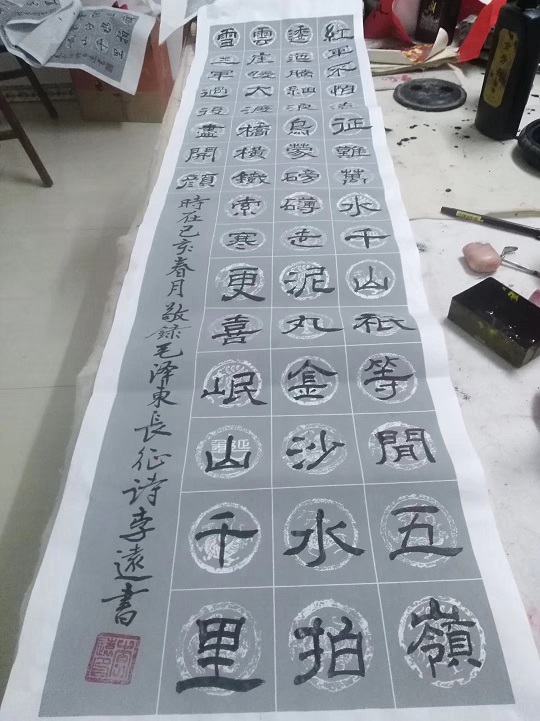 紅軍不怕遠征難萬水千山衹等閒五嶺
逶迤騰細浪烏蒙磅礴走泥丸金沙水拍
雲崖暖大渡橋橫鐵索寒更喜岷山千里
雪三軍過後盡開顏
時在己亥春月敬錄毛澤東長征詩李遠書